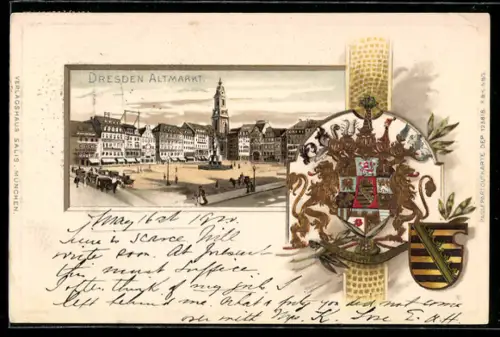 DRESDEN ALTMARKT.
VERLAGSHAUS SALIS, MÜNCHEN
May 16
time is scarce Will
write soon. At present
this must suffice.
I often think of my girls I
left behind me. What a pity you did not come
over with Mrs. K. Love E. A. H.